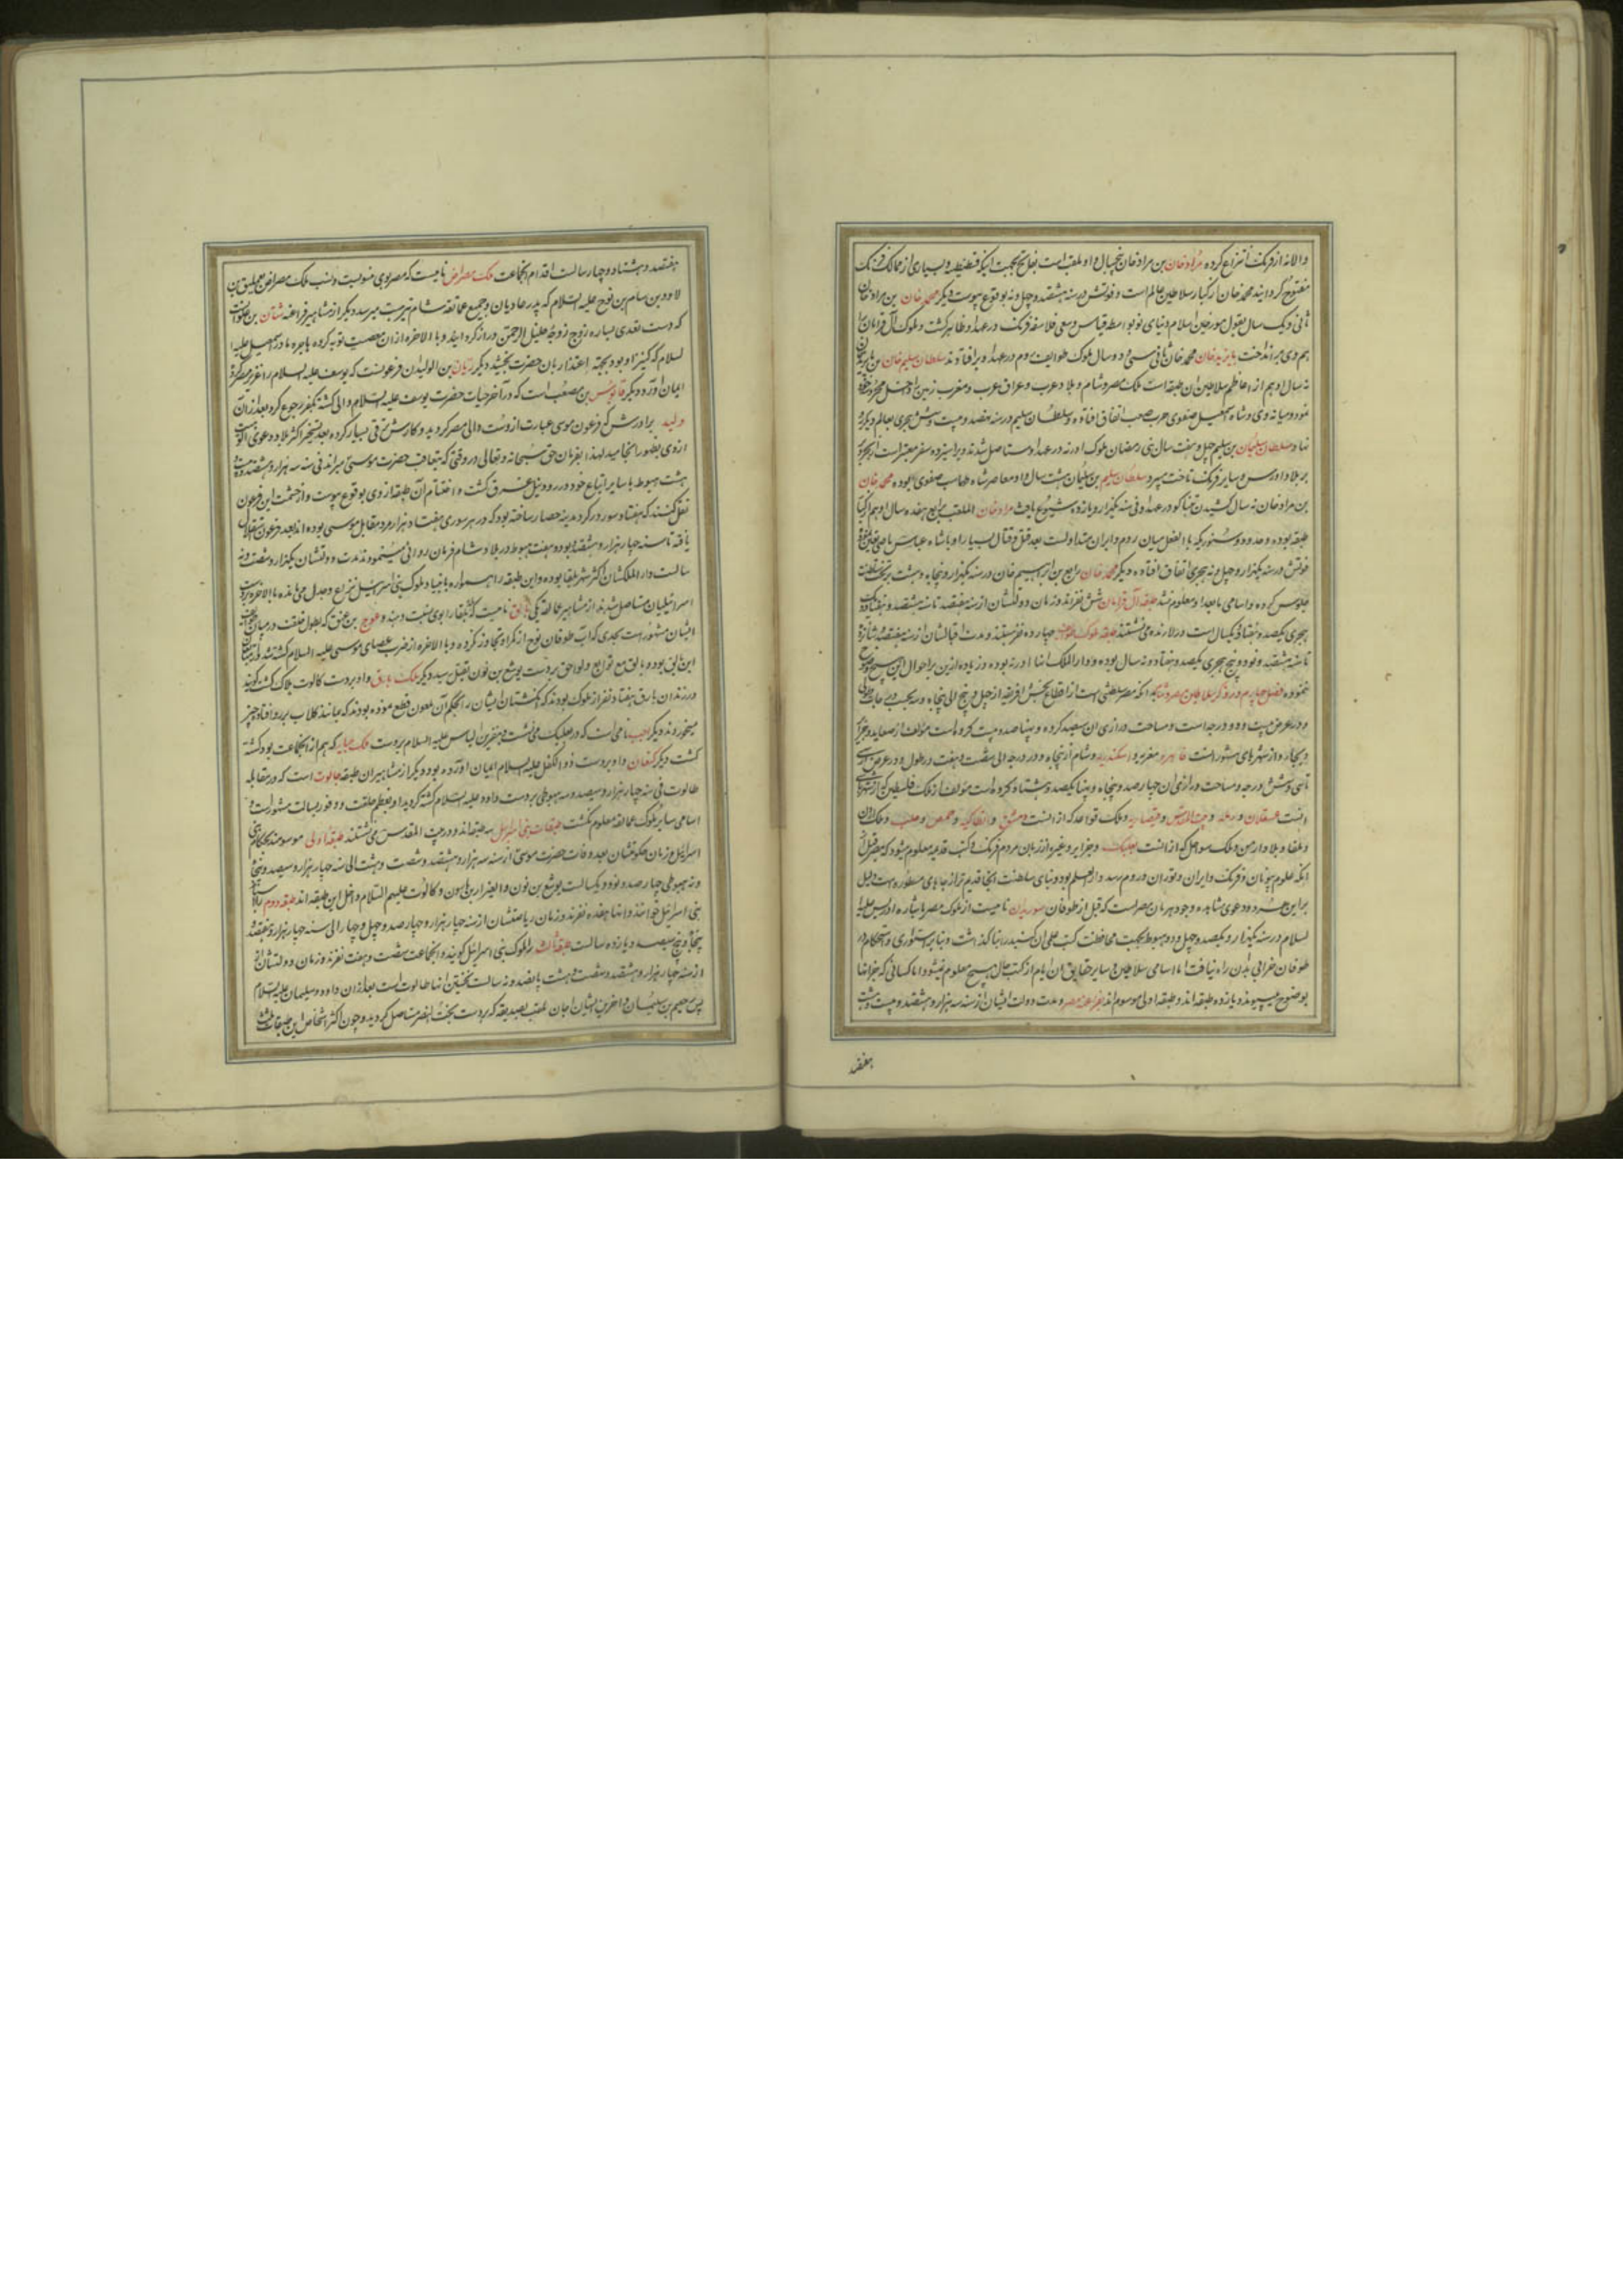 والانه از فرنک انتزاع کرده مراد خان بن مراد خان پنجسال و او ملقب است بفاتح بجهت اینکه قسطنطنیه و بسیاری از ممالک فرنک
مفتوح کردانید محمد خان از کبار سلاطین عالم است و فوتش در سنه هشتصد و چهل و نه بوقوع پیوست دیکر محمد خان بن مراد خان
ثانی و یک سال بقول مورخین اسلام دنیای نو بواسطه قیاس و سعی فلاسفه فرنک در عهد او ظاهر کشت و ملوک آل قرامان را
هم وی برانداخت بایزید خان محمد خان ثانی سی و دو سال ملوک طوایف روم در عهد او برافتادند سلطان سلیم خان بن بایزید خان
نه سال او هم از اعاظم سلاطین ان طبقه است ملک مصر و شام و بلاد عرب و عراق عرب و مغرب زمین را داخل محروسه خود
نمود و میانه وی و شاه اسمعیل صفوی حرب صعب اتفاق افتاده و سلطان سلیم در سنه نهصد و بیست و شش هجری بعالم دیکر رو
نهاد سلطان سلیمان بن سلیم چهل و هفت سال بنی رمضان ملوک اورنه در عهد او مستاصل شدند و برا سیزده سفر معتبر است
بر بلاد اورس و سایر فرنک تاخت ببرد سلطان سلیم بن سلیمان هشت سال و او معاصر شاه طهماسب صفوی بوده محمد خان
بن مراد خان نه سال کشیدن تنباکو در عهد او فی سنه یکهزار و یازده شیوع یافت مراد خان الملقب برابع هفده سال او هم از کبار
طبقه بوده و حدود و سنوریکه بالفعل میان روم و ایران متداولست بعد قتل و قتال بسیار او با شاه عباس ماضی
فوتش در سنه یکهزار و چهل و نه هجری اتفاق افتاده دیکر محمد خان رابع بن ابراهیم خان در سنه یکهزار و پنجاه و هشت بر تخت سلطنت
جلوس کرده و اسامی مابعد او معلوم نشد طبقه آل قرامان شش نفرند و زمان دولتشان از سنه هفتصد تا سنه هشتصد و هفتاد و یک
هجری یکصد و هفتاد و یکسال است و در لارنده می نشستند طبقه ملوک طوایف چهارده نفرستند و مدت اقبالشان از سنه هفتصد و شانزده
تا سنه هشتصد و نود و پنج هجری یکصد و هفتاد و نه سال بوده و دار الملک انها اورنه بوده و زیاده ازین بر احوال این
ننموده فصل چهارم در ذکر سلاطین مصر و شام بدانکه مصر سلطنتی است از اقطاع بخش افریقه از چهل و پنج الی پنجاه و سه
و در عرض بیست و دو درجه است و مساحت درازی ان سیصد کروه و پهنا صد و بیست کروه است مولف از صعاید و
و بیجاره و از شهرهای مشهور است قاهره مغربیه و اسکندریه و شام از پنجاه و دو درجه الی شصت و هفت در طول و در عرض از سی
تا سی و شش درجه و مساحت درازی ان چهار صد و پنجاه و پهنا یکصد و هشتاد کروه است مولف از ملک فلسطین که از شهرهای
انست عسقلان و رمله و بیت المقدس و قیصاریه و ملک قواعد که از انست دمشق و انطاکیه و حمص و حلب و ملک اردن
و بلقا و بلاد ارمن و ملک سواحل که از انست بعلبک و جزایر و غیره از زبان مردم فرنک و کتب قدیمه معلوم میشود که مصر قبل از
انکه علوم بیونان و فرنک و ایران و توران و روم رسد دار العلم بود و بنای سلطنت انجا قدیم تر از جاهای مسطوره است دلیل
بر این هر دو دعوی مشاهده وجود هرمان مصر است که قبل از طوفان سوریدان نامیست از ملوک مصر باشاره ادریس علیه
السلام در سنه یکهزار و یکصد و چهل و دو هبوط بجهت محافظت کتب علمی ان کنبد را بنا کذاشت و بنا بر استواری و استحکام در
طوفان خرابی بدان راه نیافت اما اسامی سلاطین و سایر حقایق ان ایام از کتب حال هیچ معلوم نمیشود اما کسانی که خبر انها
بوضوح میپیوندد یازده طبقه اند و طبقه اولی موسوم اند بفراعنه مصر و مدت دولت ایشان از سنه سه هزار و هشتصد و بیست و هشت
هفتصد
هفتصد و هشتاد و چهار سالست اقدام انجماعت ملک مصراض نامیست که مصر بوی منسوبست و نسب ملک مصراض بعملیق بن
لاود بن سام بن نوح علیه السلام که پدر عادیان و جمیع عمالقه شام تیرست میرسد دیکر از مشاهیر فراعنه سنان بن علوان
که دست تعدی بساره ازوج زوجه خلیل الرحمن دراز کردانید و بالاخره از ان معصیت توبه کرده هاجره مادر اسمعیل علیه
السلام که کنیز او بود بجهة اعتذار بان حضرت بخشید دیکر ریان بن الولید ان فرعونست که یوسف علیه السلام را عزیز مصر کرد
ایمان آورد و دیکر قابوس بن مصعب است که در آخر حیات حضرت یوسف علیه السلام والی کشته بکفر رجوع کرد بعد از ان
ولید برادرش که فرعون موسی عبارت از وست والی مصر کردید و کارش ترقی بسیار کرده بعد تسخیر اکثر بلاد دعوی الوهیت
ازوی بظهور انجامید لهذا بفرمان حق سبحانه و تعالی در وقتی که بتعاقب حضرت موسی میراند فی سنه سه هزار و هشتصد و
هشت هبوط با سایر اتباع خود در رود نیل غرق کشت و اختتام آن طبقه از وی بوقوع پیوست و از حشمت این فرعون
نقل کنند که هفتاد سور در کرد مدینه حصار ساخته بود که در هر سوری هفتاد هزار مرد مقابل موسی بوده اند بعد فرعون
یافته تا سنه چهار هزار و هشتصد بوده و هفت هبوط در بلاد شام فرمان روائی مینمودند مدت دولتشان یکهزار و شصت و نه
سالست دار الملکشان اکثر شهر بلقا بوده و این طبقه را همواره با انبیا و ملوک بنی اسرائیل نزاع و جدل می مانده تا بالاخره بر دست
اسرائیلیان مستاصل شدند از مشاهیر عمالقه یکی بالق نامیست که بلقا را بوی نسبت دهند و عوج بن عنق که بطول خلقت در میان
ایشان مشهور است بحدی که آب طوفان نوح از کمر او تجاوز نکرده و بالاخره از ضرب عصای موسی علیه السلام کشته شد
ابن بالق بوده و بالق مع توابع و لواحق بر دست یوشع بن نون بقتل رسید دیکر ملک بارق و او بر دست کالوت هلاک کشت کویند
در زندان بارق هفتاد نفر از ملوک بودند که انکشتان ایشان را بحکم آن ملعون قطع نموده بودند که مانند کلاب بر رو افتاده چیز
میخوردند دیکر احب نامی است که در بعلبک می نشست و بنفرین الیاس علیه السلام بر دست ملک جبابره که هم از انجماعت بود کشته
کشت دیکر کنعان و او بر دست ذو الکفل علیه السلام ایمان آورده بود و دیکر از مشاهیر ان طبقه جالوت است که در مقابله
طالوت فی سنه چهار هزار و سیصد و سه هبوطی بر دست داود علیه السلام کشته کردید و بعظم خلقت و وفور بسالت مشهور است
اسامی سایر ملوک عمالقه معلوم نکشت طبقات بنی اسرائیل سه طبقه اند و در بیت المقدس می نشستند طبقه اولی موسومند بحکام بنی
اسرائیل و زمان حکومتشان بعد وفات حضرت موسی از سنه سه هزار و هشتصد و شصت و هشت الی سنه چهار هزار و سیصد و پنجاه
و نه هبوطی چهار صد و نود و یکسالست یوشع بن نون و العیزار بن هارون و کالوت علیهم السلام داخل این طبقه اند طبقه دوم
بنی اسرائیل خوانند و انها هفده نفرند و زمان ریاستشان از سنه چهار هزار و چهار صد و چهل و چهار الی سنه چهار هزار و هفتصد
پنجاه و پنج سیصد و یازده سالست طبقه ثالث را ملوک بنی اسرائیل کویند و انجماعت شصت و هفت نفرند و زمان دولتشان
از سنه چهار هزار و هشتصد و شصت و هشت پانصد و نه سالست نخستین انها طالوت است بعد از ان داود و سلیمان علیه السلام
پس رجعیم بن سلیمان و آخرین ایشان اجان بلقب بصدیقه که بر دست بخت النصر مستاصل کردید و چون اکثر اشخاص این طبقات